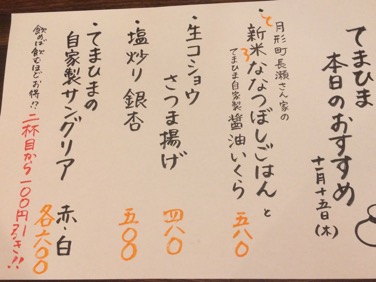 てまひま
本日のおすすめ
十一月十五日(木)
月形町長瀬さん家の
・新米ななつぼしごはんと
てまひま自家製醤油いくら
五八〇
・生コショウ
さつま揚げ
四八〇
・塩炒り銀杏
五〇〇
・てまひまの
自家製サングリア
赤・白
各六〇〇
飲めば飲むほどお得!?
二杯目から一〇〇円引き!!